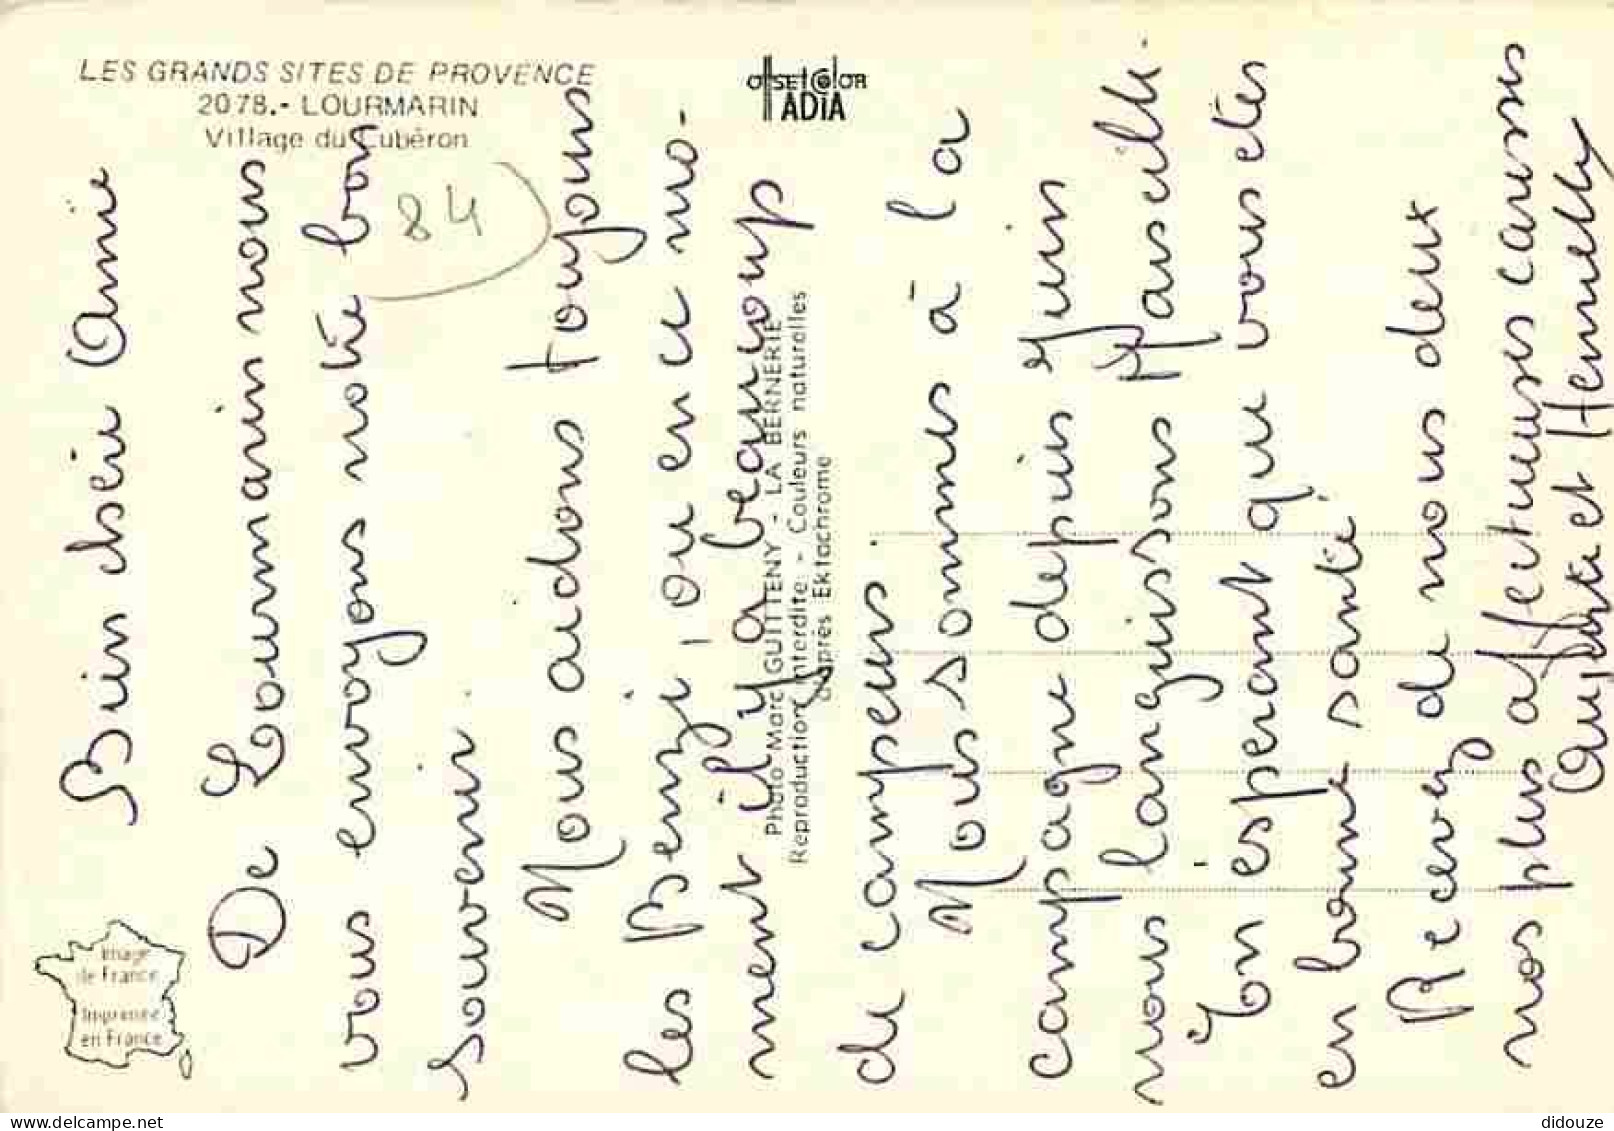 LES GRANDS SITES DE PROVENCE
2078.- LOURMARIN
Village du Lubéron
offsetcolor
ADIA
84
Image
de France
Imprimée
en France
Photo Marc GUITTENY - LA BERNERIE
Reproduction interdite - Couleurs naturelles
d'après Ektachrome
Bien chère Amie
De Lourmarin nous
vous envoyons notre bon
souvenir
Nous aidons toujours
les Benzi, ou en ce mo-
ment il y a beaucoup
de campeurs.
Nous sommes à la
campagne depuis Juin
nous languissons Marseille.
En espérant que vous etes
en bonne santé,
Recevez de nous deux
nos plus affectueuses caresses
et
delcampe.net
didouze